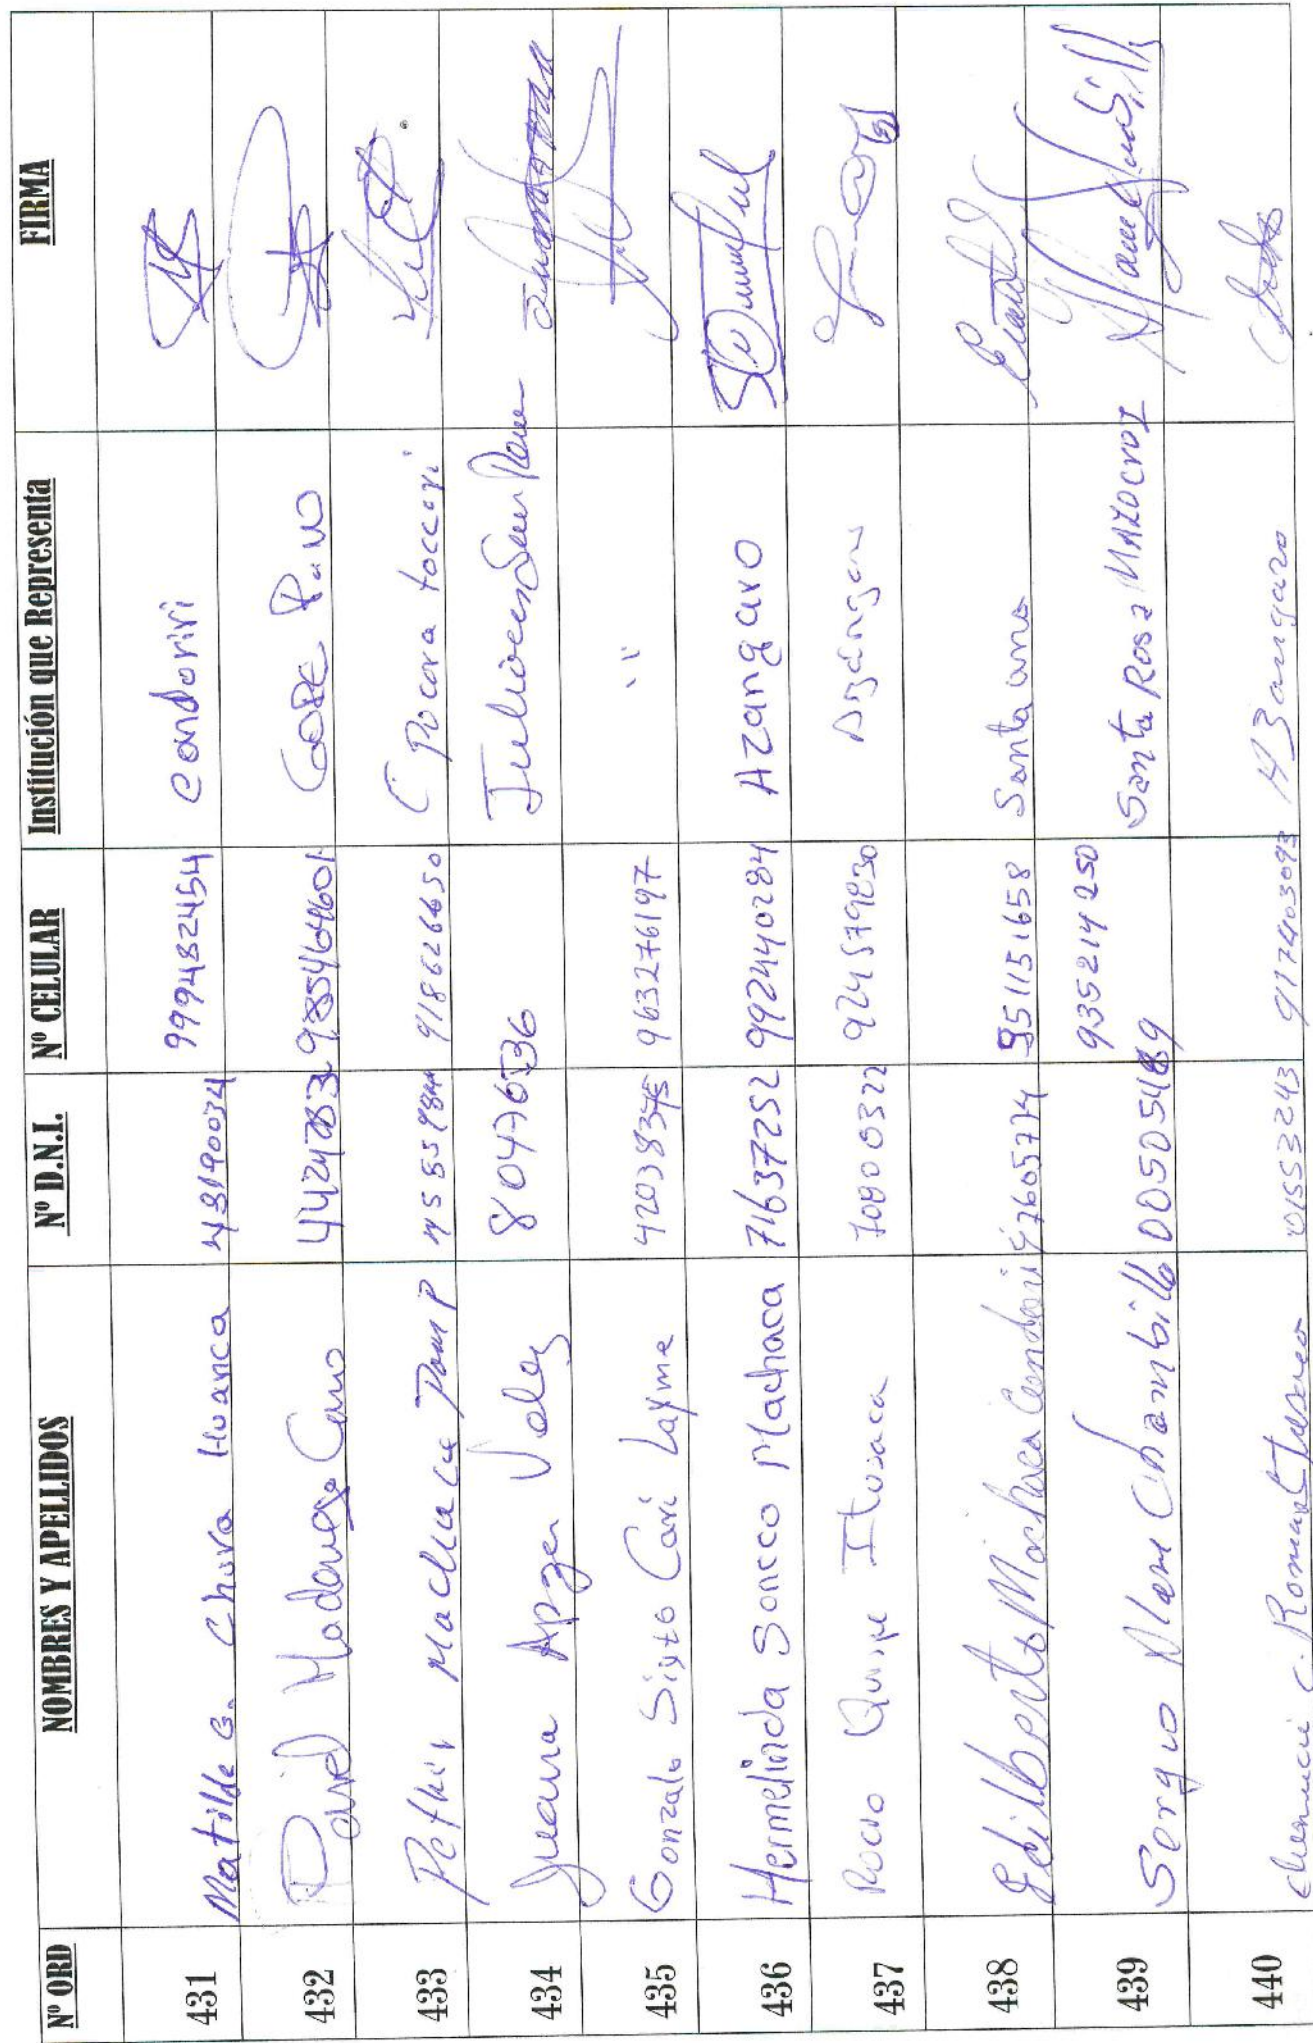 Nº ORD NOMBRES Y APELLIDOS Nº D.N.I. Nº CELULAR Institución que Representa FIRMA
431 Matilde G. Chura Huanca 43190034 999482454 Condoriri
432 David Madariaga Cano 985464601 CORE Puno
433 Machaca 918626650 C Pocora toccori
434 Juana Apza Velez 80476536
435 Gonzalo Sixto Cari Layme 42038375 963276197 ''
436 Hermelinda Soncco Machaca 71637252 992440284 Azangaro
437 Rocio Quispe Itusaca 70800322 924579830 Azángaro
438 Edilberto Machaca Condori 47605774 951151658 Santa ana
439 Sergio Alani Chambilla 00505489 935214250 Santa Rosa MAZOCRUZ
440 C. 01553243 917403093 Azangaro